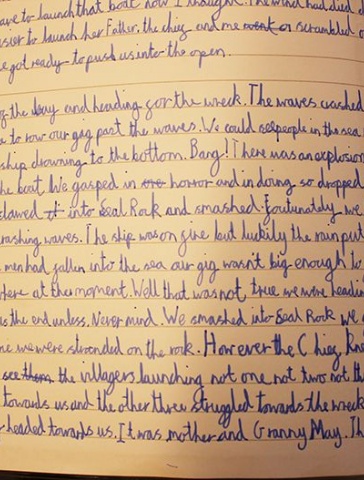 ave to launch that boat now I thought. The wind had died d
easier to launch her Father, the chieg and me went or scrambled o
e got ready to push us into the open.
g the bay and heading gor the wreck. The waves crashed
e to row our gig past the waves. We could see people in the sea.
ship drowning to the bottom. Bang! There was an explosion
the boat. We gasped in ore horror and in doing so dropped
slowed it into Seal Rock and smashed. Fortunately we
rashing waves. The ship was on gire but luckily the rain put
men had gallen into the sea our gig wasn't big enough to
there at this moment. Well that was not true we were headin
as the end unless. Never mind. We smashed into Seal Rock we
ne we were stronded on the rock. However the Chieg kne
see them the villagers launching not one not two not th
towards us and the other three struggled towards the wreck
r headed towards us. It was mother and Granny May. Th